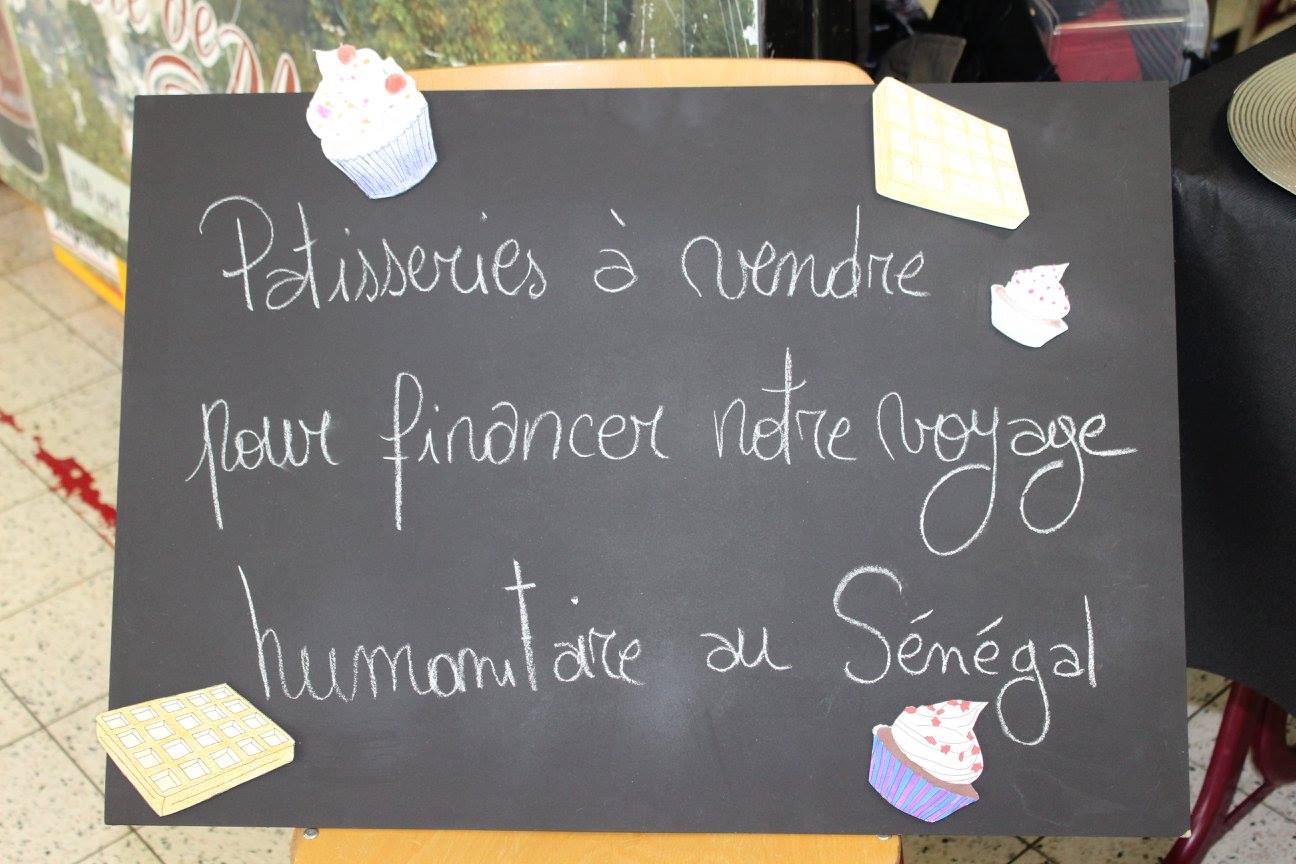 Patisseries à vendre
pour financer notre voyage
humanitaire au Sénégal